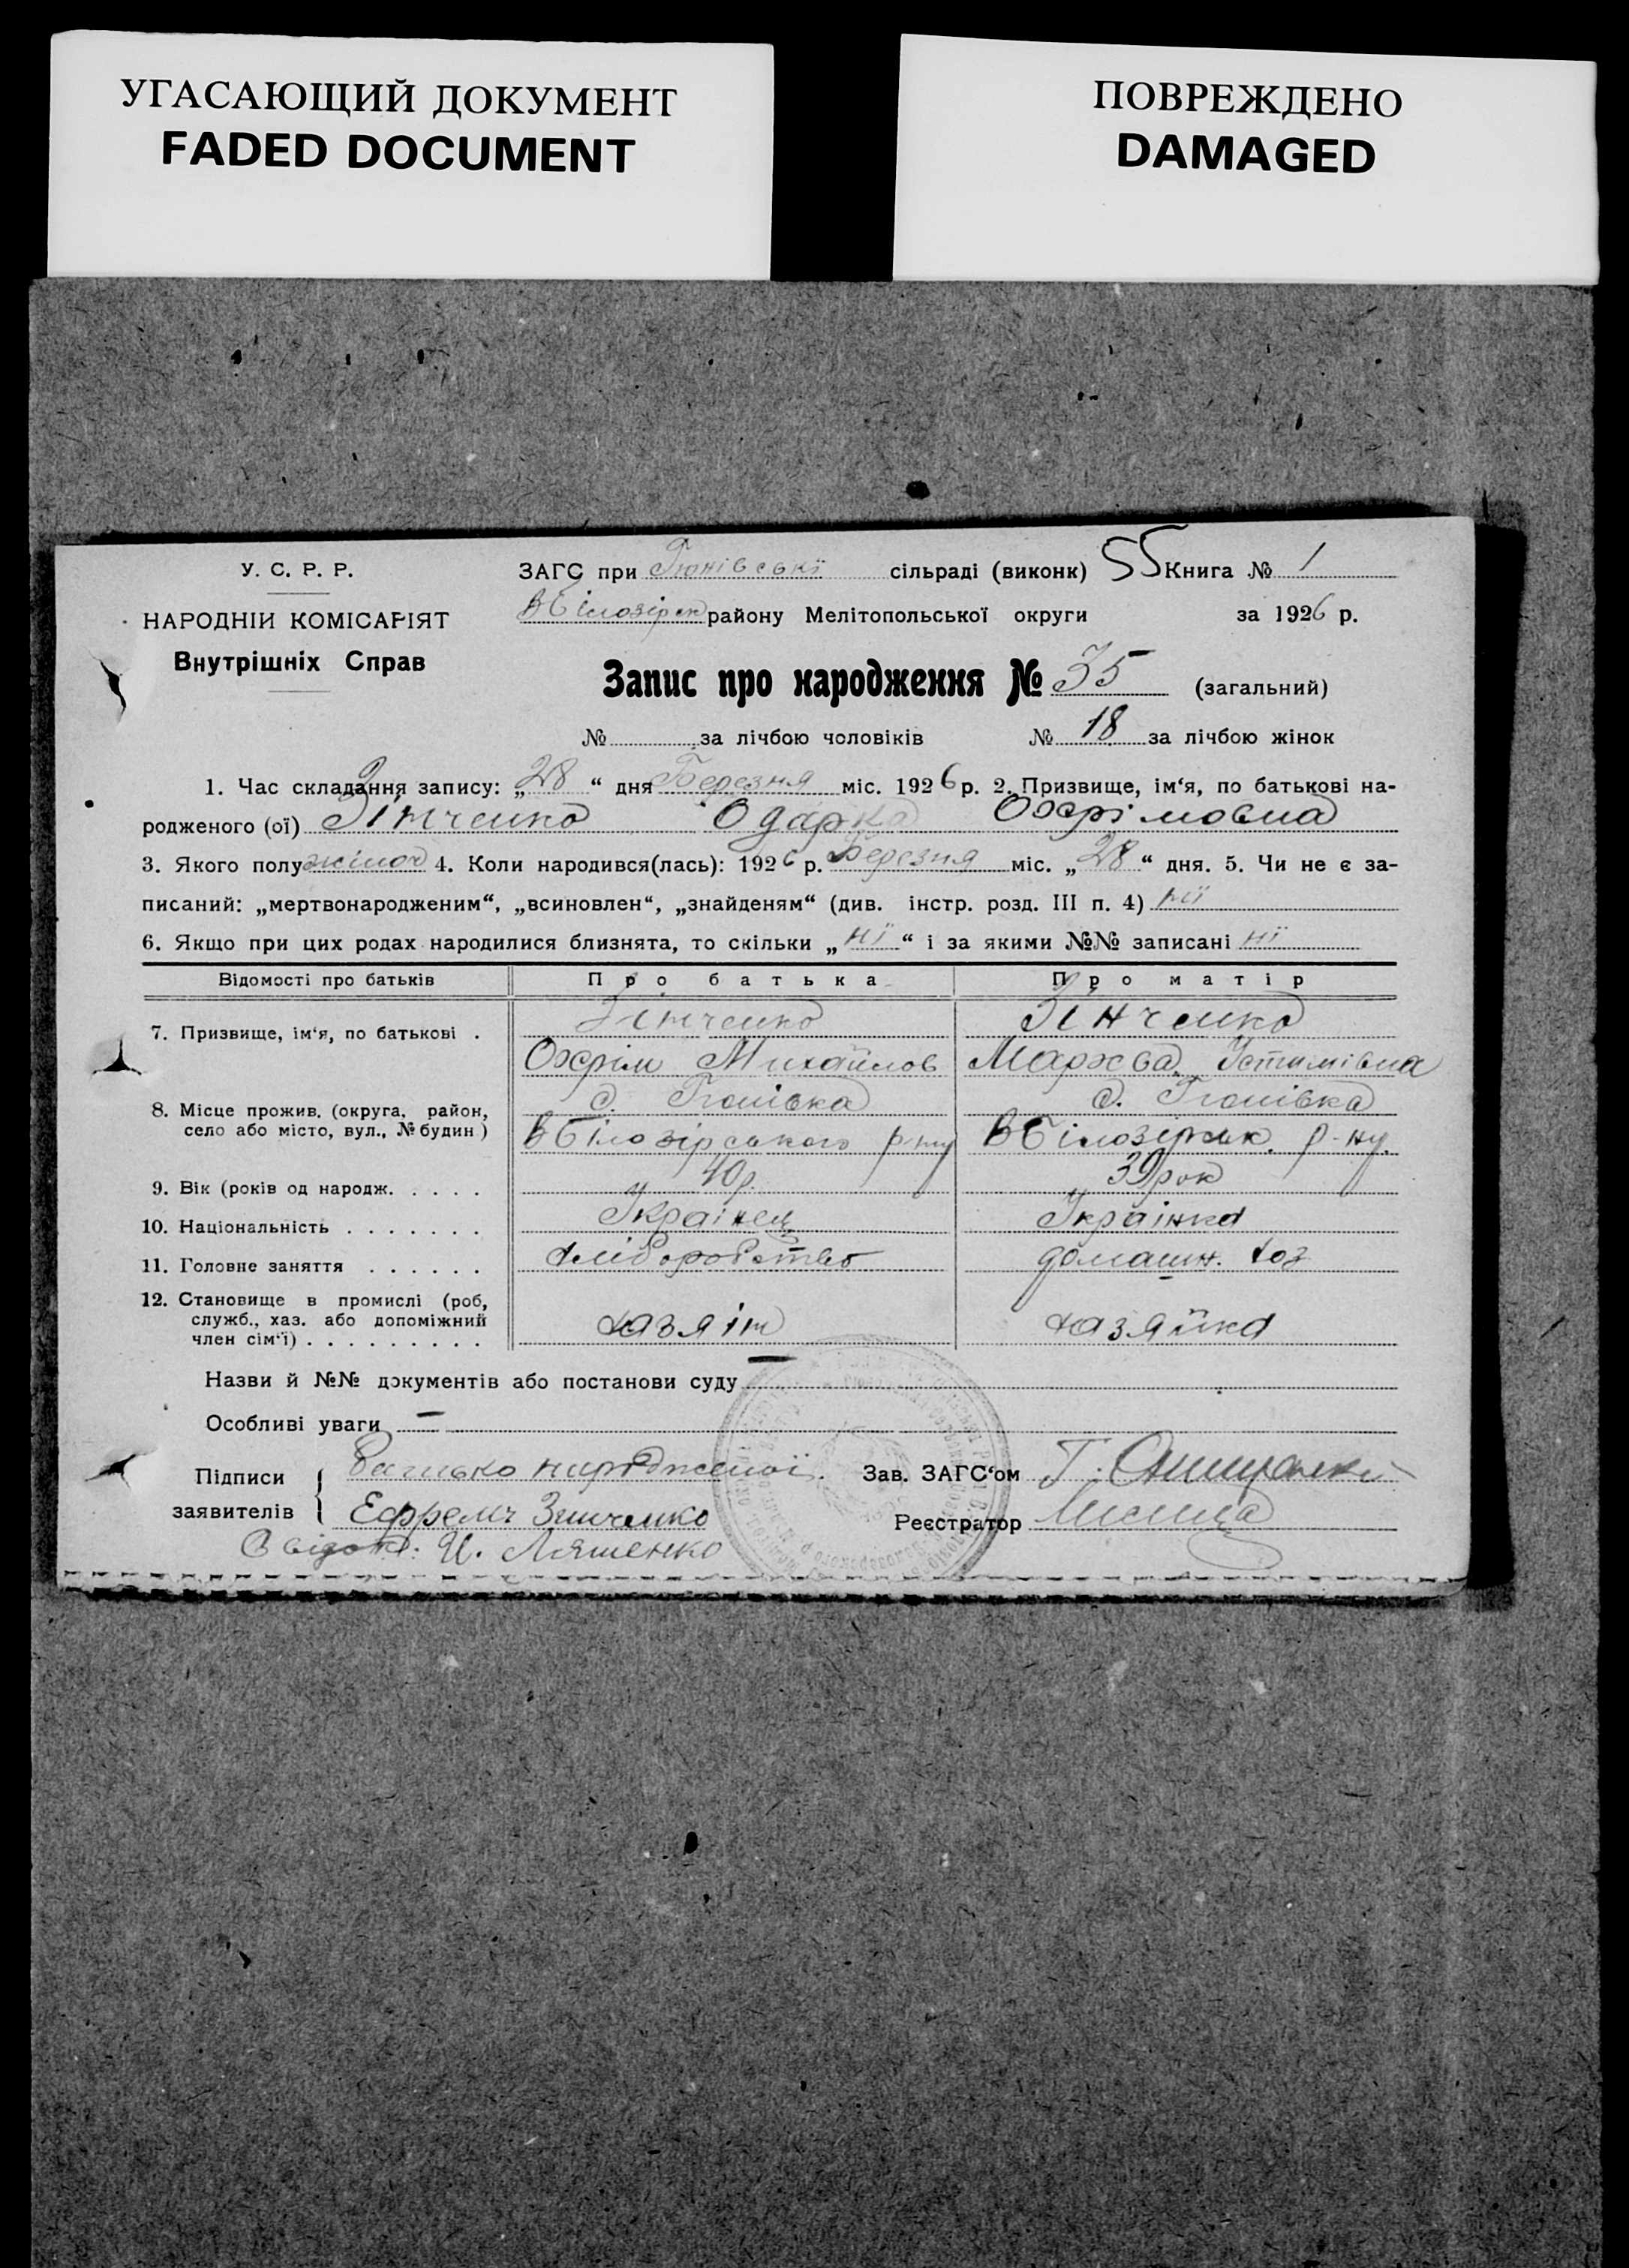 УГАСАЮЩИЙ ДОКУМЕНТ
FADED DOCUMENT
ПОВРЕЖДЕНО
DAMAGED
У. С. Р. Р.
НАРОДНІЙ КОМІСАРІЯТ
Внутрішніх Справ
ЗАГС при Гюнівські сільраді (виконк) 55 Книга № 1
ВБілозірск району Мелітопольської округи за 1926 р.
Запис про народження № 35 (загальний)
№ за лічбою чоловіків № 18 за лічбою жінок
1. Час складання запису: „28“ дня Березня міс. 1926 р. 2. Призвище, ім‘я, по батькові на-
родженого (ої) Зінченко Одарка Охрімовна
3. Якого полу жіноч 4. Коли народився(лась): 1926 р. Березня міс. „28“ дня. 5. Чи не є за-
писаний: „мертвонародженим“, „всиновлен“, „знайденям“ (див. інстр. розд. III п. 4) нї
6. Якщо при цих родах народилися близнята, то скільки „нї“ і за якими №№ записані нї
Відомості про батьків Про батька Про матір
7. Призвище, ім‘я, по батькові . Зінченко Зінченко
Охрім Михайлов Мархва Устимівна
8. Місце прожив. (округа, район, с. Гюнівка с. Гюнівка
село або місто, вул., № будин) ВБілозірського р-ну ВБілозірськ. р-ну.
9. Вік (років од народж. . . . . 40 р. 39 рок
10. Національність . . . . . . . Украінец Украінка
11. Головне заняття . . . . . . хліборобство домашн. хоз
12. Становище в промислі (роб,
служб., хаз. або допоміжний
член сім‘ї) . . . . . . . . . хазяін хазяйка
Назви й №№ документів або постанови суду —
Особливі уваги —
Підписи заявителів { Батько народженої.
Ефремъ Зинченко
Свідок: И. Ляшенко
Зав. ЗАГС‘ом Г.
Реєстратор Лисица